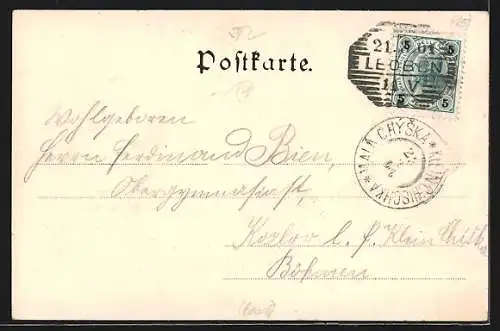 Postkarte.
21. 5 01
LEOBEN
11 V
5 5
5 5
MALÁ CHYŠKA * KLEINCHISCHKA *
Wohlgeboren
Herrn Ferdinand Bien,
Obergymnasiast,
Kozlov b. f. Klein Chiska
Böhmen.